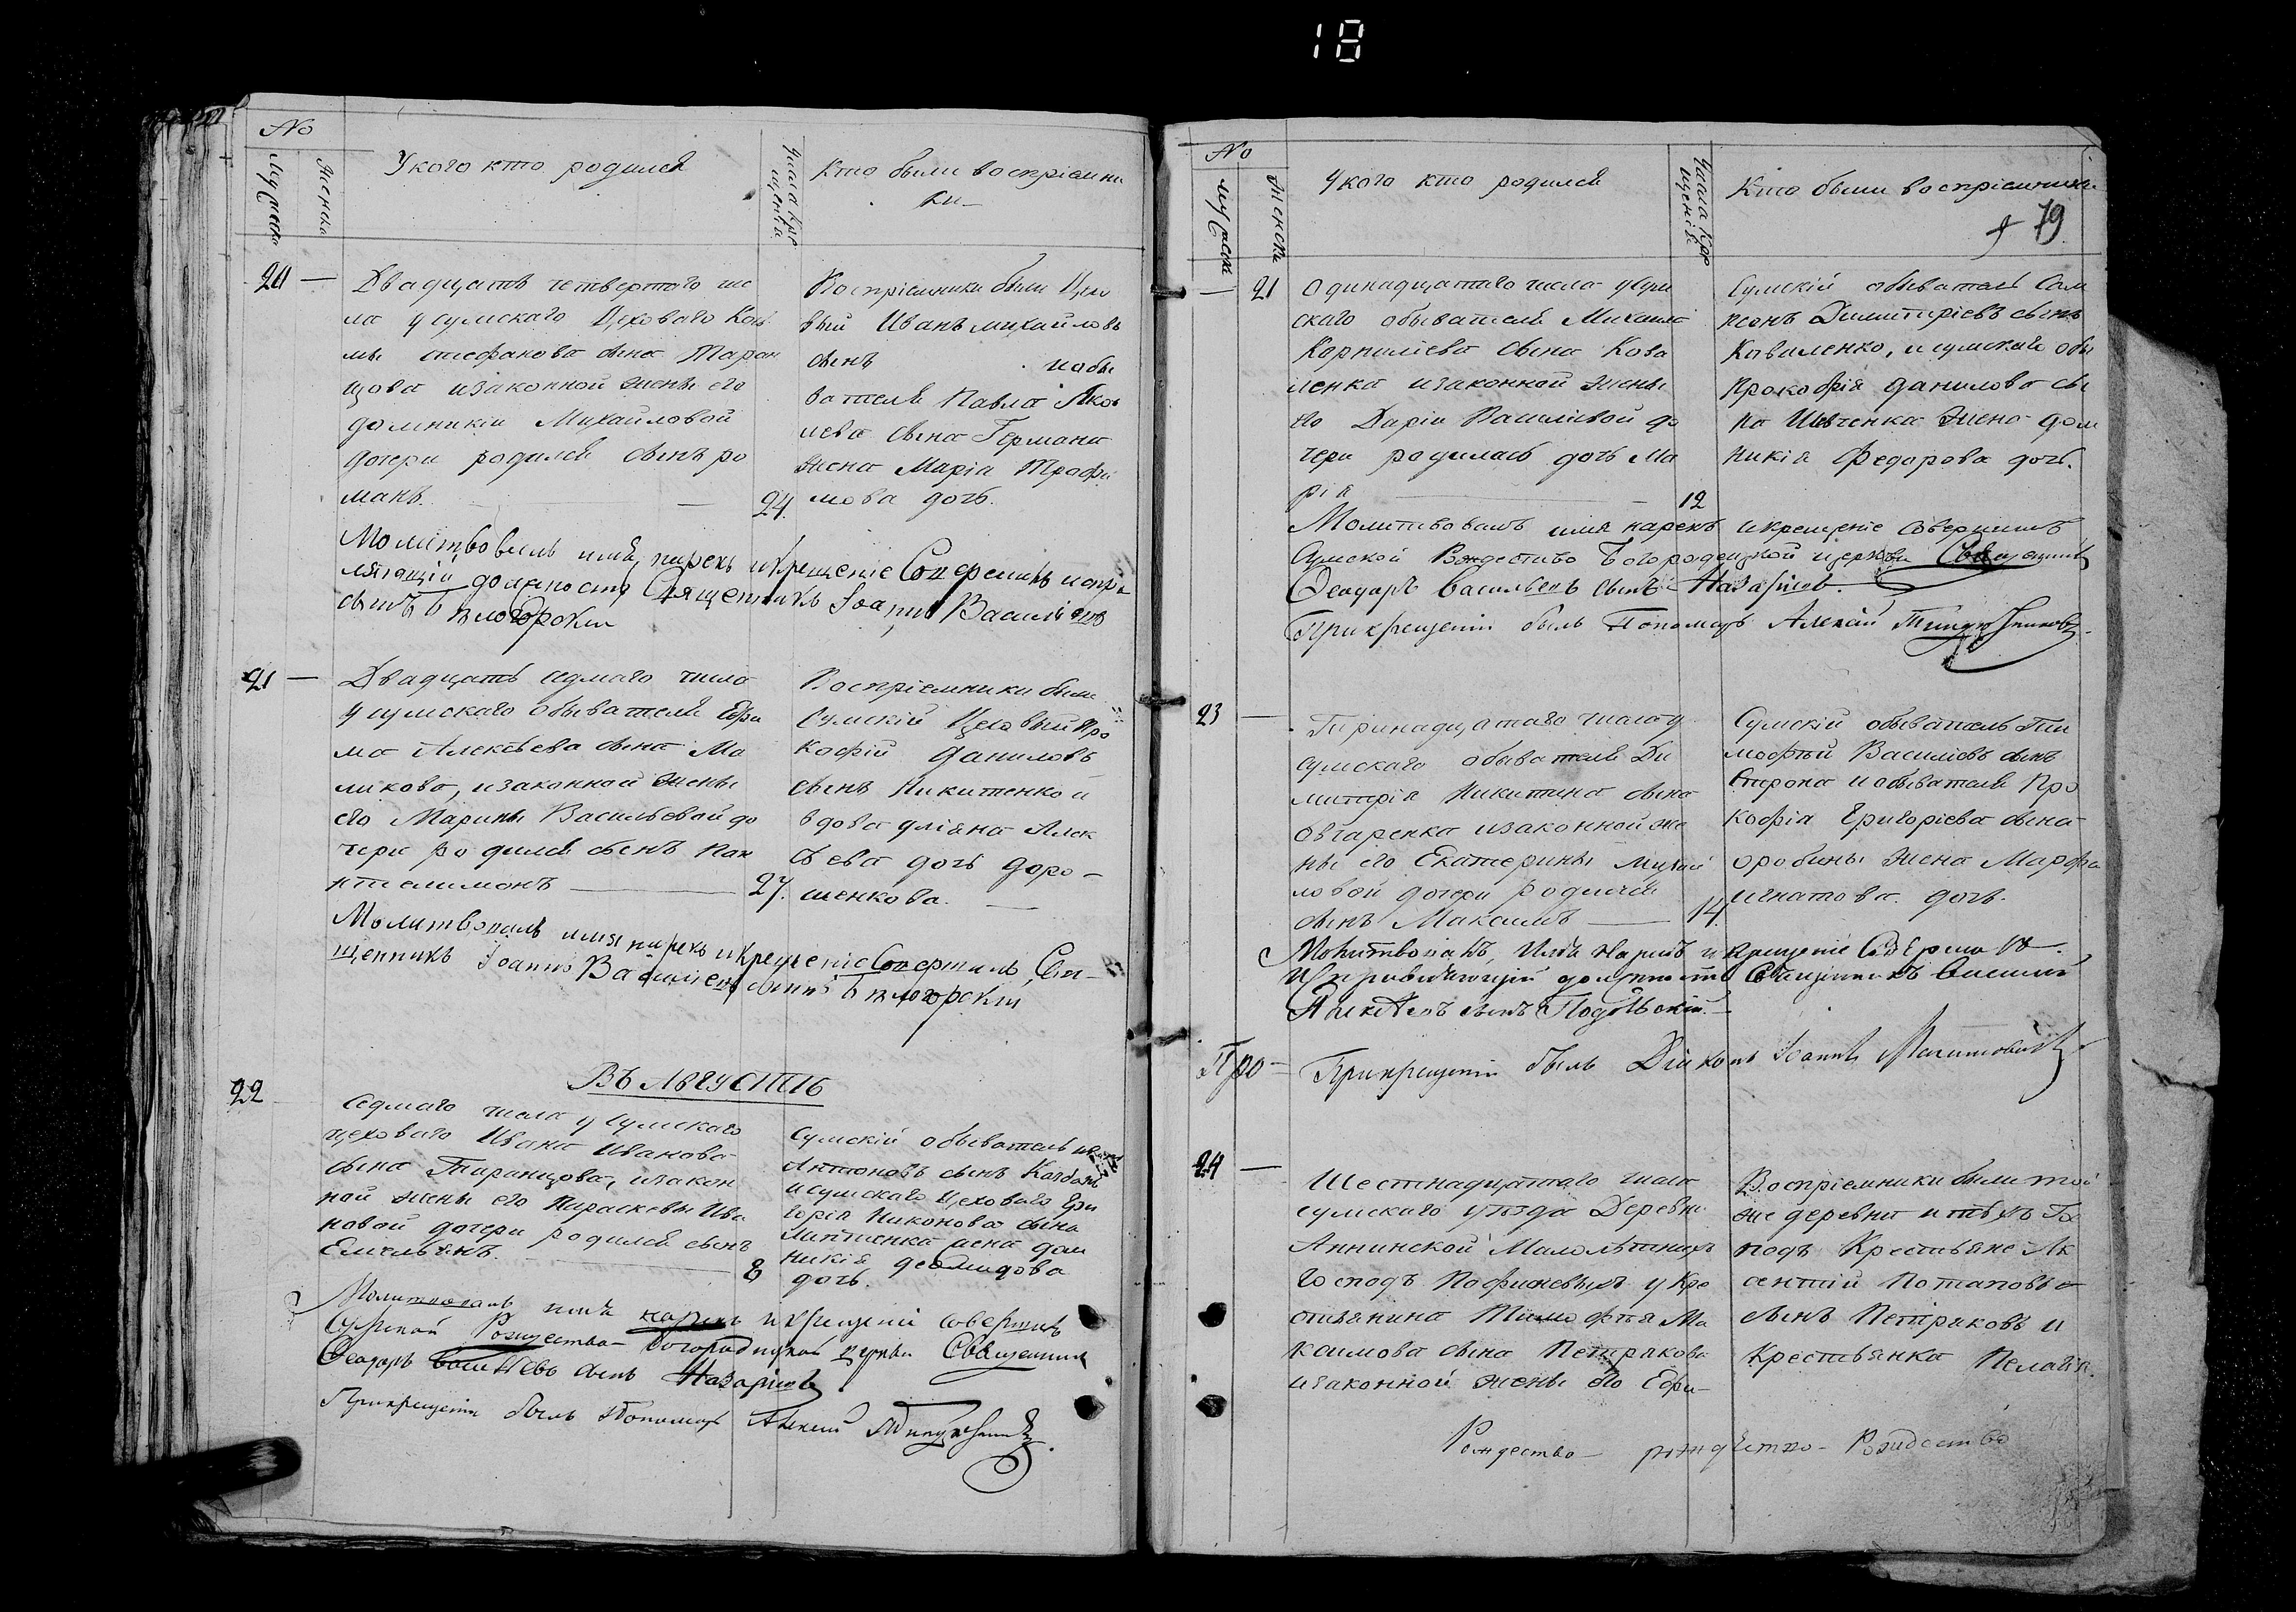 18
No
Мужеска
Женска
У кого кто родился
Числа кре
щенія
Кто были воспріемни
ки
20 — Двадцать четвертого чис
ла у сумскаго Цеховаго Козь
мы стефанова сына Таран
цова изаконной жены его
домникіи Михайловой
дочери родился сынъ ро
манъ. — 24.
Воспріемники были Цехо
вый Иванъ михайловъ
сынъ иобы
вателя Павла Яков
лева сына Германа
жена Марія Трофи
мова дочь.
Молитвовалъ имя, нарекъ икрещеніе Совершилъ испра
вляющій должность Священникъ Іоаннъ Василіевъ
сынъ Бѣлогорскій
21 — Двадцать седмаго числа
у сумскаго обывателя Ефи
ма Алексѣева сына Ма
ликова, изаконной жены
его Марины Васильевой до
чери родился сынъ Пан
телимонъ — 27.
Воспріемники были
Сумскій Цеховый Про
кофій даниловъ
сынъ Никитенко и
вдова уліяна Алек
сѣева дочь доро-
шенкова. —
Молитвовалъ имя нарекъ икрещеніе Совершилъ, Свя-
щенникъ Іоаннъ Василіевъ сынъ Бѣлогорскій
ВЪ АВГУСТѢ
22
Седмаго числа у сумскаго
цеховаго Ивана Иванова
сына Таранцова, изакон
ной жены его Параскевы Ива
новой дочери родился сынъ
Емельянъ. — 8
Сумскій обыватель
Антоновъ сынъ
исумскаго Цеховаго Гри
горія Никонова сына
жена дом
никія деомидова
дочь.
Молитвовалъ имя нарекъ икрещеніе совершилъ
Сумской Рождества Богородицкой церкви Священникъ
Феодоръ Васильевъ сынъ Назарьевъ
При крещеніи былъ Пономарь Алексій
No
Мужеска
Женска
У кого кто родился
Числа кре
щенія
Кто были воспріемники
79
— 21 Одинадцатаго числа усум
скаго обывателя Михаила
Корниліева сына Кова
ленка изаконной жены
его Даріи Василіевой до
чери родилась дочь Ма
рія — 12
Сумскій обыватель Сам
псонъ Димитріевъ сынъ
Коваленко, исумскаго обы
Прокофія данилова сы
на Шевченка жена дом
никія Федорова дочь.
Молитвовалъ имя нарекъ икрещеніе совершилъ
Сумской Рождество Богородицкой церкви Священникъ
Феодоръ Васильевъ сынъ Назарьевъ.
При крещеніи былъ Пономарь Алексій
23 —
Тринадцатаго числа у
сумскаго обывателя Ди
митрія Никитина сына
Овчаренка изаконной же
ны его Екатерины Михай
ловой дочери родился
сынъ Максимъ — 14.
Сумскій обыватель Ти
мофѣй Василіевъ сынъ
Сторона иобывателя Про
кофія Григоріева сына
оробины жена Марфа
игнатова дочь.
Молитвовалъ, Имя Нарекъ икрещеніе Совершилъ
Исправляющій должность Священникъ Василій
Алексѣевъ сынъ Подольскій. —
Про-
При крещеніи былъ Діаконъ Іоаннъ
24 —
Шестнадцатаго числа
сумскаго уѣзда Деревни
Аннинской Малолѣтнихъ
Господъ у Кре
стьянина Тимофѣя Ма
ксимова сына Петракова
изаконной жены его Ефи-
Воспріемники были той
же деревни итѣхъ Гос
подъ Крестьяне Ав
сентій Потаповъ
сынъ Петраковъ и
Крестьянка Пелагія.
Рождество — рождество — Рождество